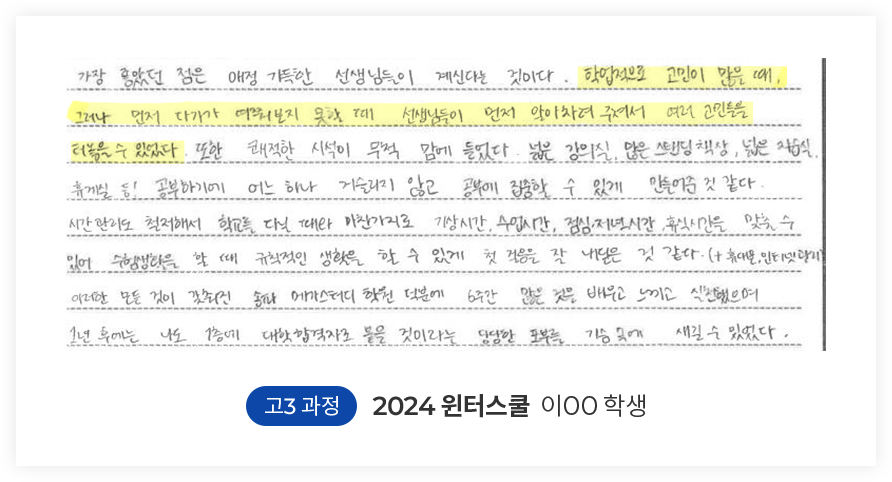 가장 좋았던 점은 애정 가득한 선생님들이 계신다는 것이다. 학업적으로 고민이 많을 때,
그러나 먼저 다가가 여쭤보지 못할 때 선생님들이 먼저 알아차려 주셔서 여러 고민들을
터놓을 수 있었다. 또한 쾌적한 시설이 무척 맘에 들었다. 넓은 강의실, 많은 스탠딩책상, 넓은 자습실,
휴게실 등! 공부하기에 어느 하나 거슬리지 않고 공부에 집중할 수 있게 만들어준 것 같다.
시간관리도 철저해서 학교를 다닐 때와 마찬가지로 기상시간, 수업시간, 점심·저녁시간, 휴식시간을 맞출 수
있어 수험생활을 할 때 규칙적인 생활을 할 수 있게 첫 걸음을 잘 내딛은 것 같다. (+ 휴대폰, 인터넷
이러한 모든 것이 갖춰진 송파 메가스터디 학원 덕분에 6주간 많은 것을 배우고 느끼고 실천했으며
1년 후에는 나도 1층에 대학합격자로 붙을 것이라는 당당한 포부를 가슴 속에 새길 수 있었다.
고3 과정 2024 윈터스쿨 이OO 학생